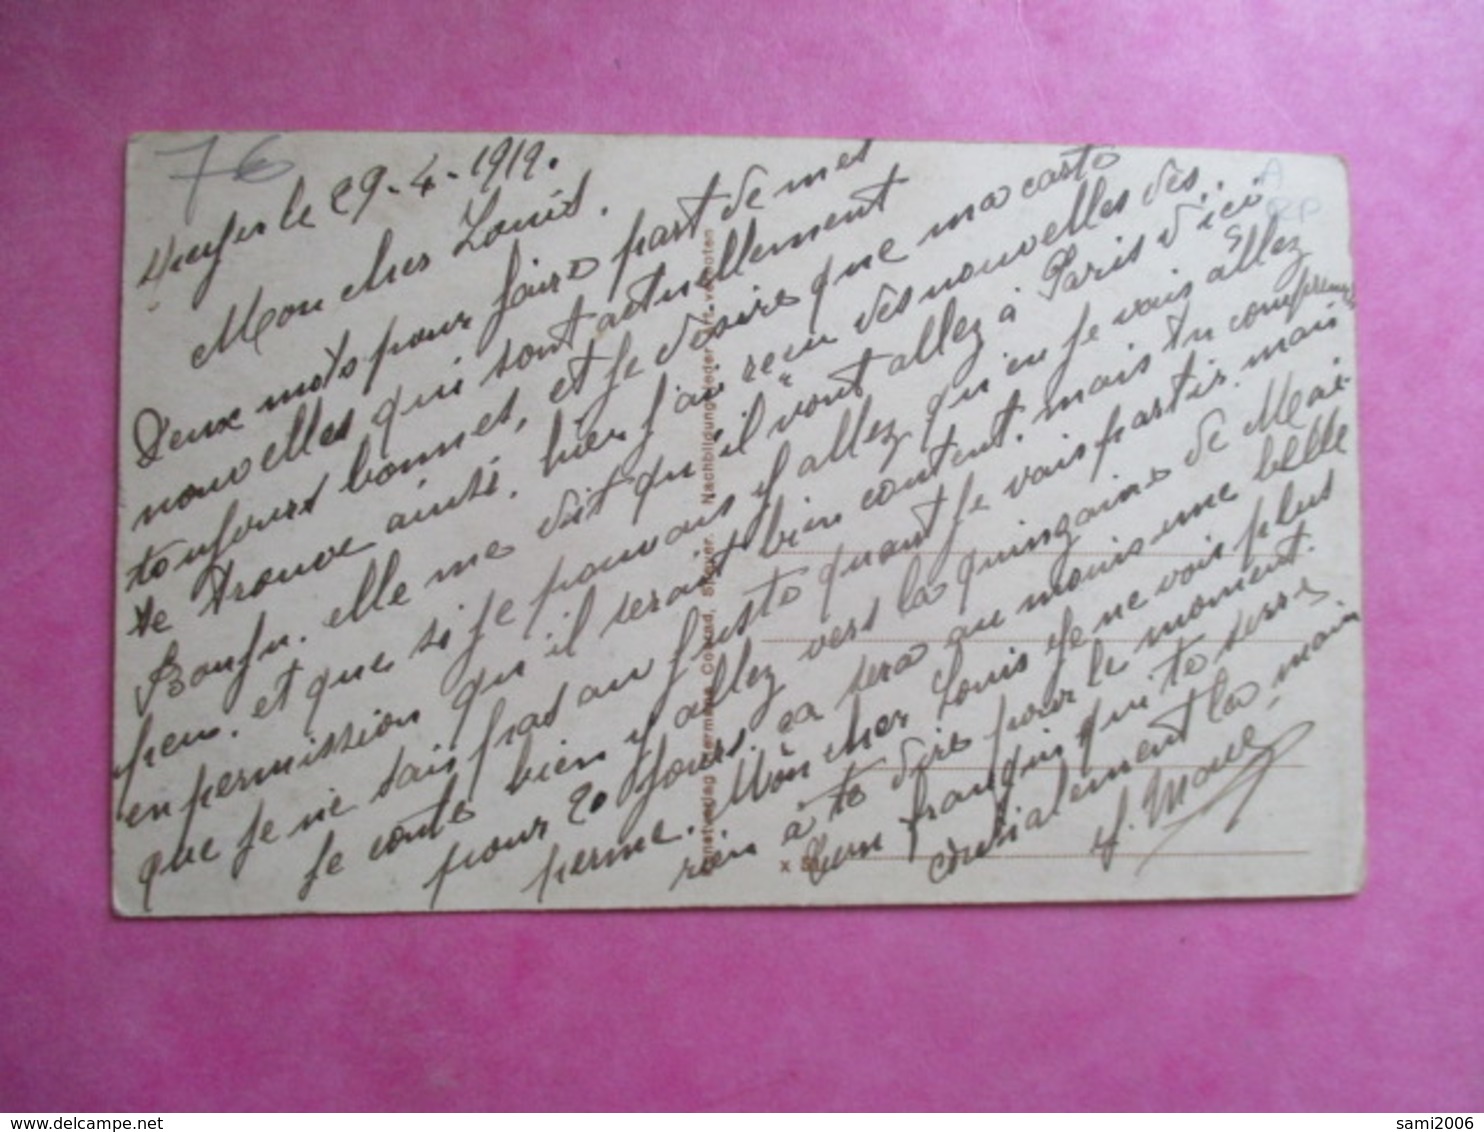 76
A
RP
le 29-4-1919.
Mon cher Louis.
Deux mots pour faire part de mes
nouvelles qui sont actuellement
toujours bonnes, et je désire que ma carte
te trouve ainsi. hier j'ai reçu des nouvelles des
elle me dit qu'il vont allez à Paris d'ici
peu. et que si je pouvais y allez, qu'en je vais allez
en permission qu'il serait bien content. mais tu comprends
que je ne sais pas au juste quant je vais partir. mais
je conte bien y allez vers la quinzaine de Mai
pour 20 jours. ca sera au moins une belle
perme. Mon cher Louis je ne vois plus
rien à te dire pour le moment.
ton frangin qui te serre
cordialement la main
Nachbildung
verboten